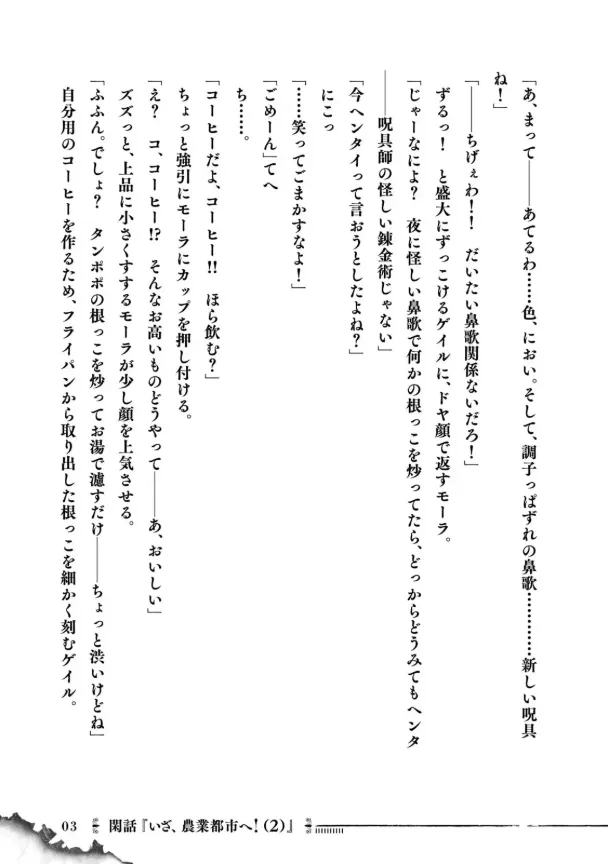 「あ、まって――あてるわ……色、におい。そして、調子っぱずれの鼻歌…………新しい呪具
ね!」
「――ちげぇわ!! だいたい鼻歌関係ないだろ!」
ずるっ! と盛大にずっこけるゲイルに、ドヤ顔で返すモーラ。
「じゃーなによ? 夜に怪しい鼻歌で何かの根っこを炒ってたら、どっからどうみてもヘンタ
――呪具師の怪しい錬金術じゃない」
「今ヘンタイって言おうとしたよね?」
にこっ
「……笑ってごまかすなよ!」
「ごめーん」てへ
ち……。
「コーヒーだよ、コーヒー!! ほら飲む?」
ちょっと強引にモーラにカップを押し付ける。
「え? コ、コーヒー!? そんなお高いものどうやって――あ、おいしい」
ズズっと、上品に小さくすするモーラが少し顔を上気させる。
「ふふん。でしょ? タンポポの根っこを炒ってお湯で濾すだけ――ちょっと渋いけどね」
自分用のコーヒーを作るため、フライパンから取り出した根っこを細かく刻むゲイル。
03 閑話『いざ、農業都市へ!(2)』